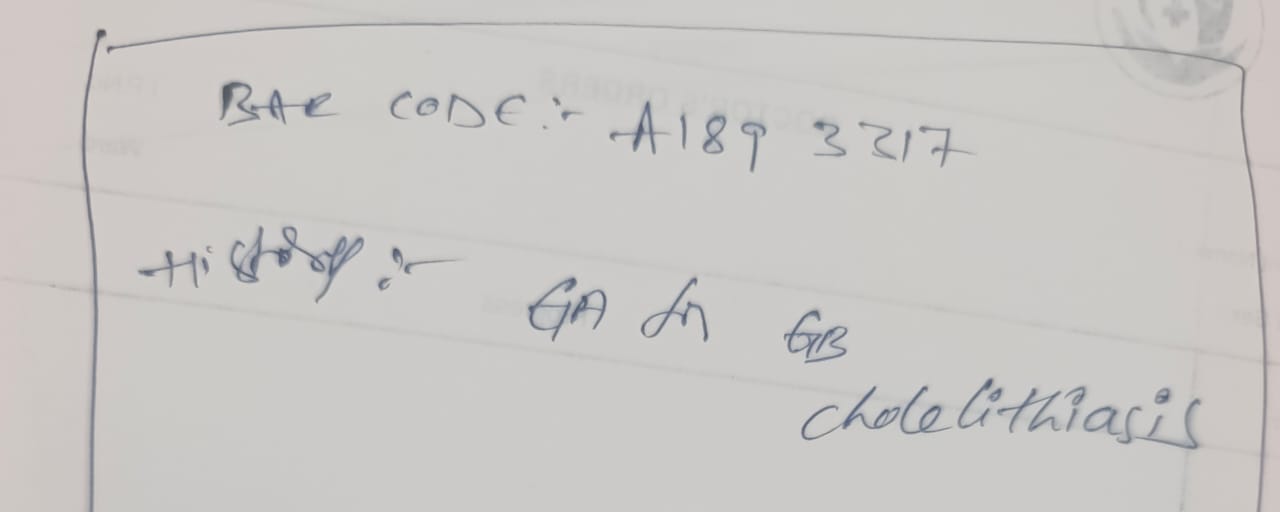 BAR CODE:- A189 3317
History:- GA for GB
cholelithiasis